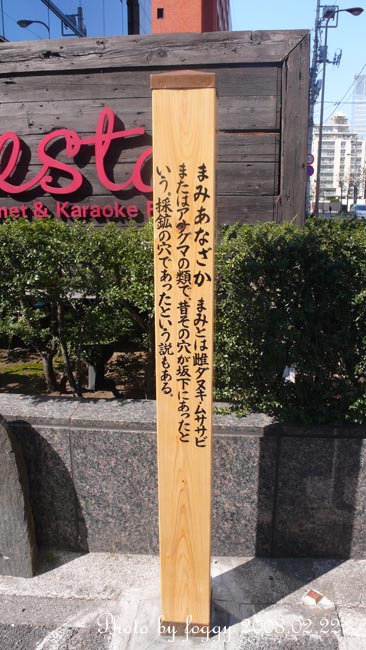 まみあなざか　まみとは雌ダヌキ・ムササビ
またはアナグマの類で、昔その穴が坂下にあったと
いう。採鉱の穴であったという説もある。
esta
net & Karaoke
Photo by foggy 2008.02.22